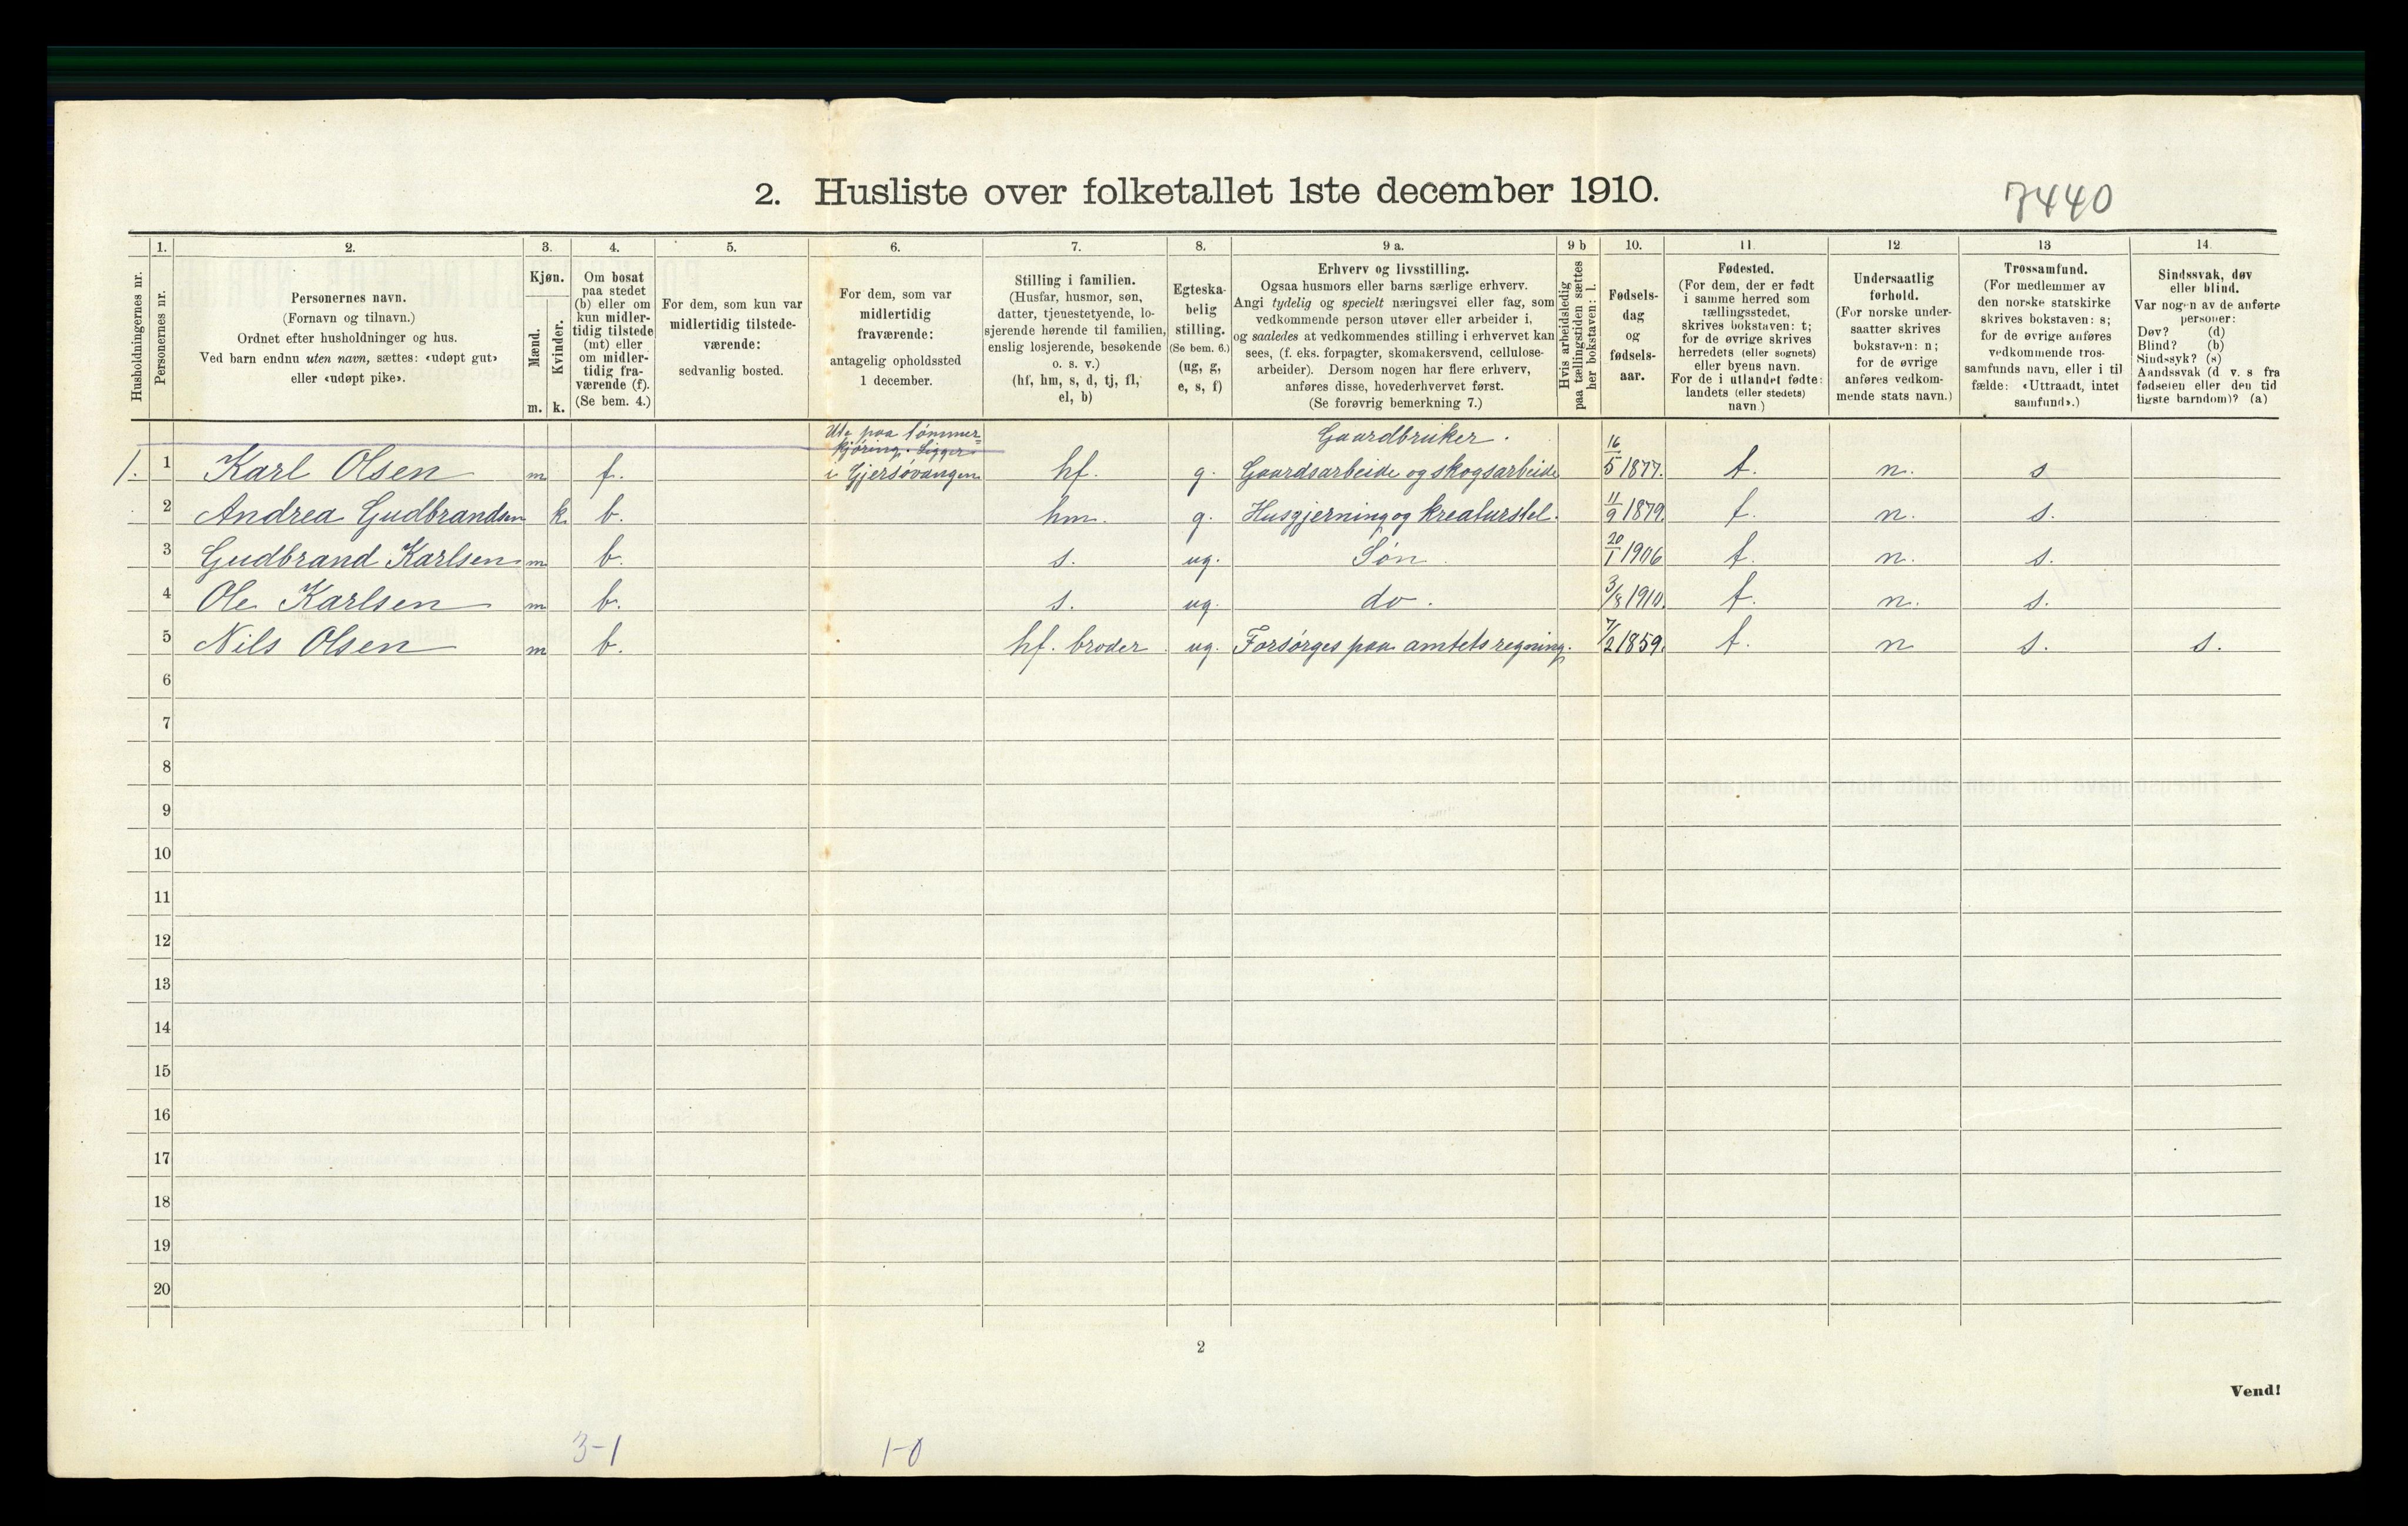 2. Husliste over folketallet 1ste december 1910.
7440
Husholdningernes nr.
1.
Personernes nr.
2.
Personernes navn.
(Fornavn og tilnavn.)
Ordnet efter husholdninger og hus.
Ved barn endnu uten navn, sættes: «udøpt gut»
eller «udøpt pike».
3.
Kjøn.
Mænd.
m.
Kvinder.
k.
4.
Om bosat
paa stedet
(b) eller om
kun midler-
tidig tilstede
(mt) eller
om midler-
tidig fra-
værende (f).
(Se bem. 4.)
5.
For dem, som kun var
midlertidig tilstede-
værende:
sedvanlig bosted.
6.
For dem, som var
midlertidig
fraværende:
antagelig opholdssted
1 december.
7.
Stilling i familien.
(Husfar, husmor, søn,
datter, tjenestetyende, lo-
sjerende hørende til familien,
enslig losjerende, besøkende
o. s. v.)
(hf, hm, s, d, tj, fl,
el, b)
8.
Egteska-
belig
stilling.
(Se bem. 6.)
(ug, g,
e, s, f)
9 a.
Erhverv og livsstilling.
Ogsaa husmors eller barns særlige erhverv.
Angi tydelig og specielt næringsvei eller fag, som
vedkommende person utøver eller arbeider i,
og saaledes at vedkommendes stilling i erhvervet kan
sees, (f. eks. forpagter, skomakersvend, cellulose-
arbeider). Dersom nogen har flere erhverv,
anføres disse, hovederhvervet først.
(Se forøvrig bemerkning 7.)
9 b
Hvis arbeidsledig
paa tællingstiden sættes
her bokstaven: l.
10.
Fødsels-
dag
og
fødsels-
aar.
11.
Fødested.
(For dem, der er født
i samme herred som
tællingsstedet,
skrives bokstaven: t;
for de øvrige skrives
herredets (eller sognets)
eller byens navn.
For de i utlandet fødte:
landets (eller stedets)
navn.)
12
Undersaatlig
forhold.
(For norske under-
saatter skrives
bokstaven: n;
for de øvrige
anføres vedkom-
mende stats navn.)
13
Trossamfund.
(For medlemmer av
den norske statskirke
skrives bokstaven: s;
for de øvrige anføres
vedkommende tros-
samfunds navn, eller i til
fælde: «Uttraadt, intet
samfund».)
14
Sindssvak, døv
eller blind.
Var nogen av de anførte
personer:
Døv? (d)
Blind? (b)
Sindssyk? (s)
Aandssvak (d. v. s. fra
fødselen eller den tid
ligste barndom)? (a)
Ute paa tømmer=
kjøring. Ligger
Gaardbruker.
1. 1 Karl Olsen m f. i Gjersøvangen hf. g. Gaardsarbeide og skogsarbeide 16/5 1877. t. n. s
2 Andrea Gudbrandsen k. b. hm. g. Husgjerning og kreaturstel. 11/9 1879. t. n. s.
3 Gudbrand Karlsen m b. s. ug. Søn. 20/1 1906 t. n. s.
4 Ole Karlsen m b. s. ug. do. 3/8 1910. t. n. s.
5 Nils Olsen m b. hf. broder ug. Forsørges paa amtets regning. 7/2 1859. t. n s. s.
6
7
8
9
10
11
12
13
14
15
16
17
18
19
20
2
Vend!
3-1 1-0